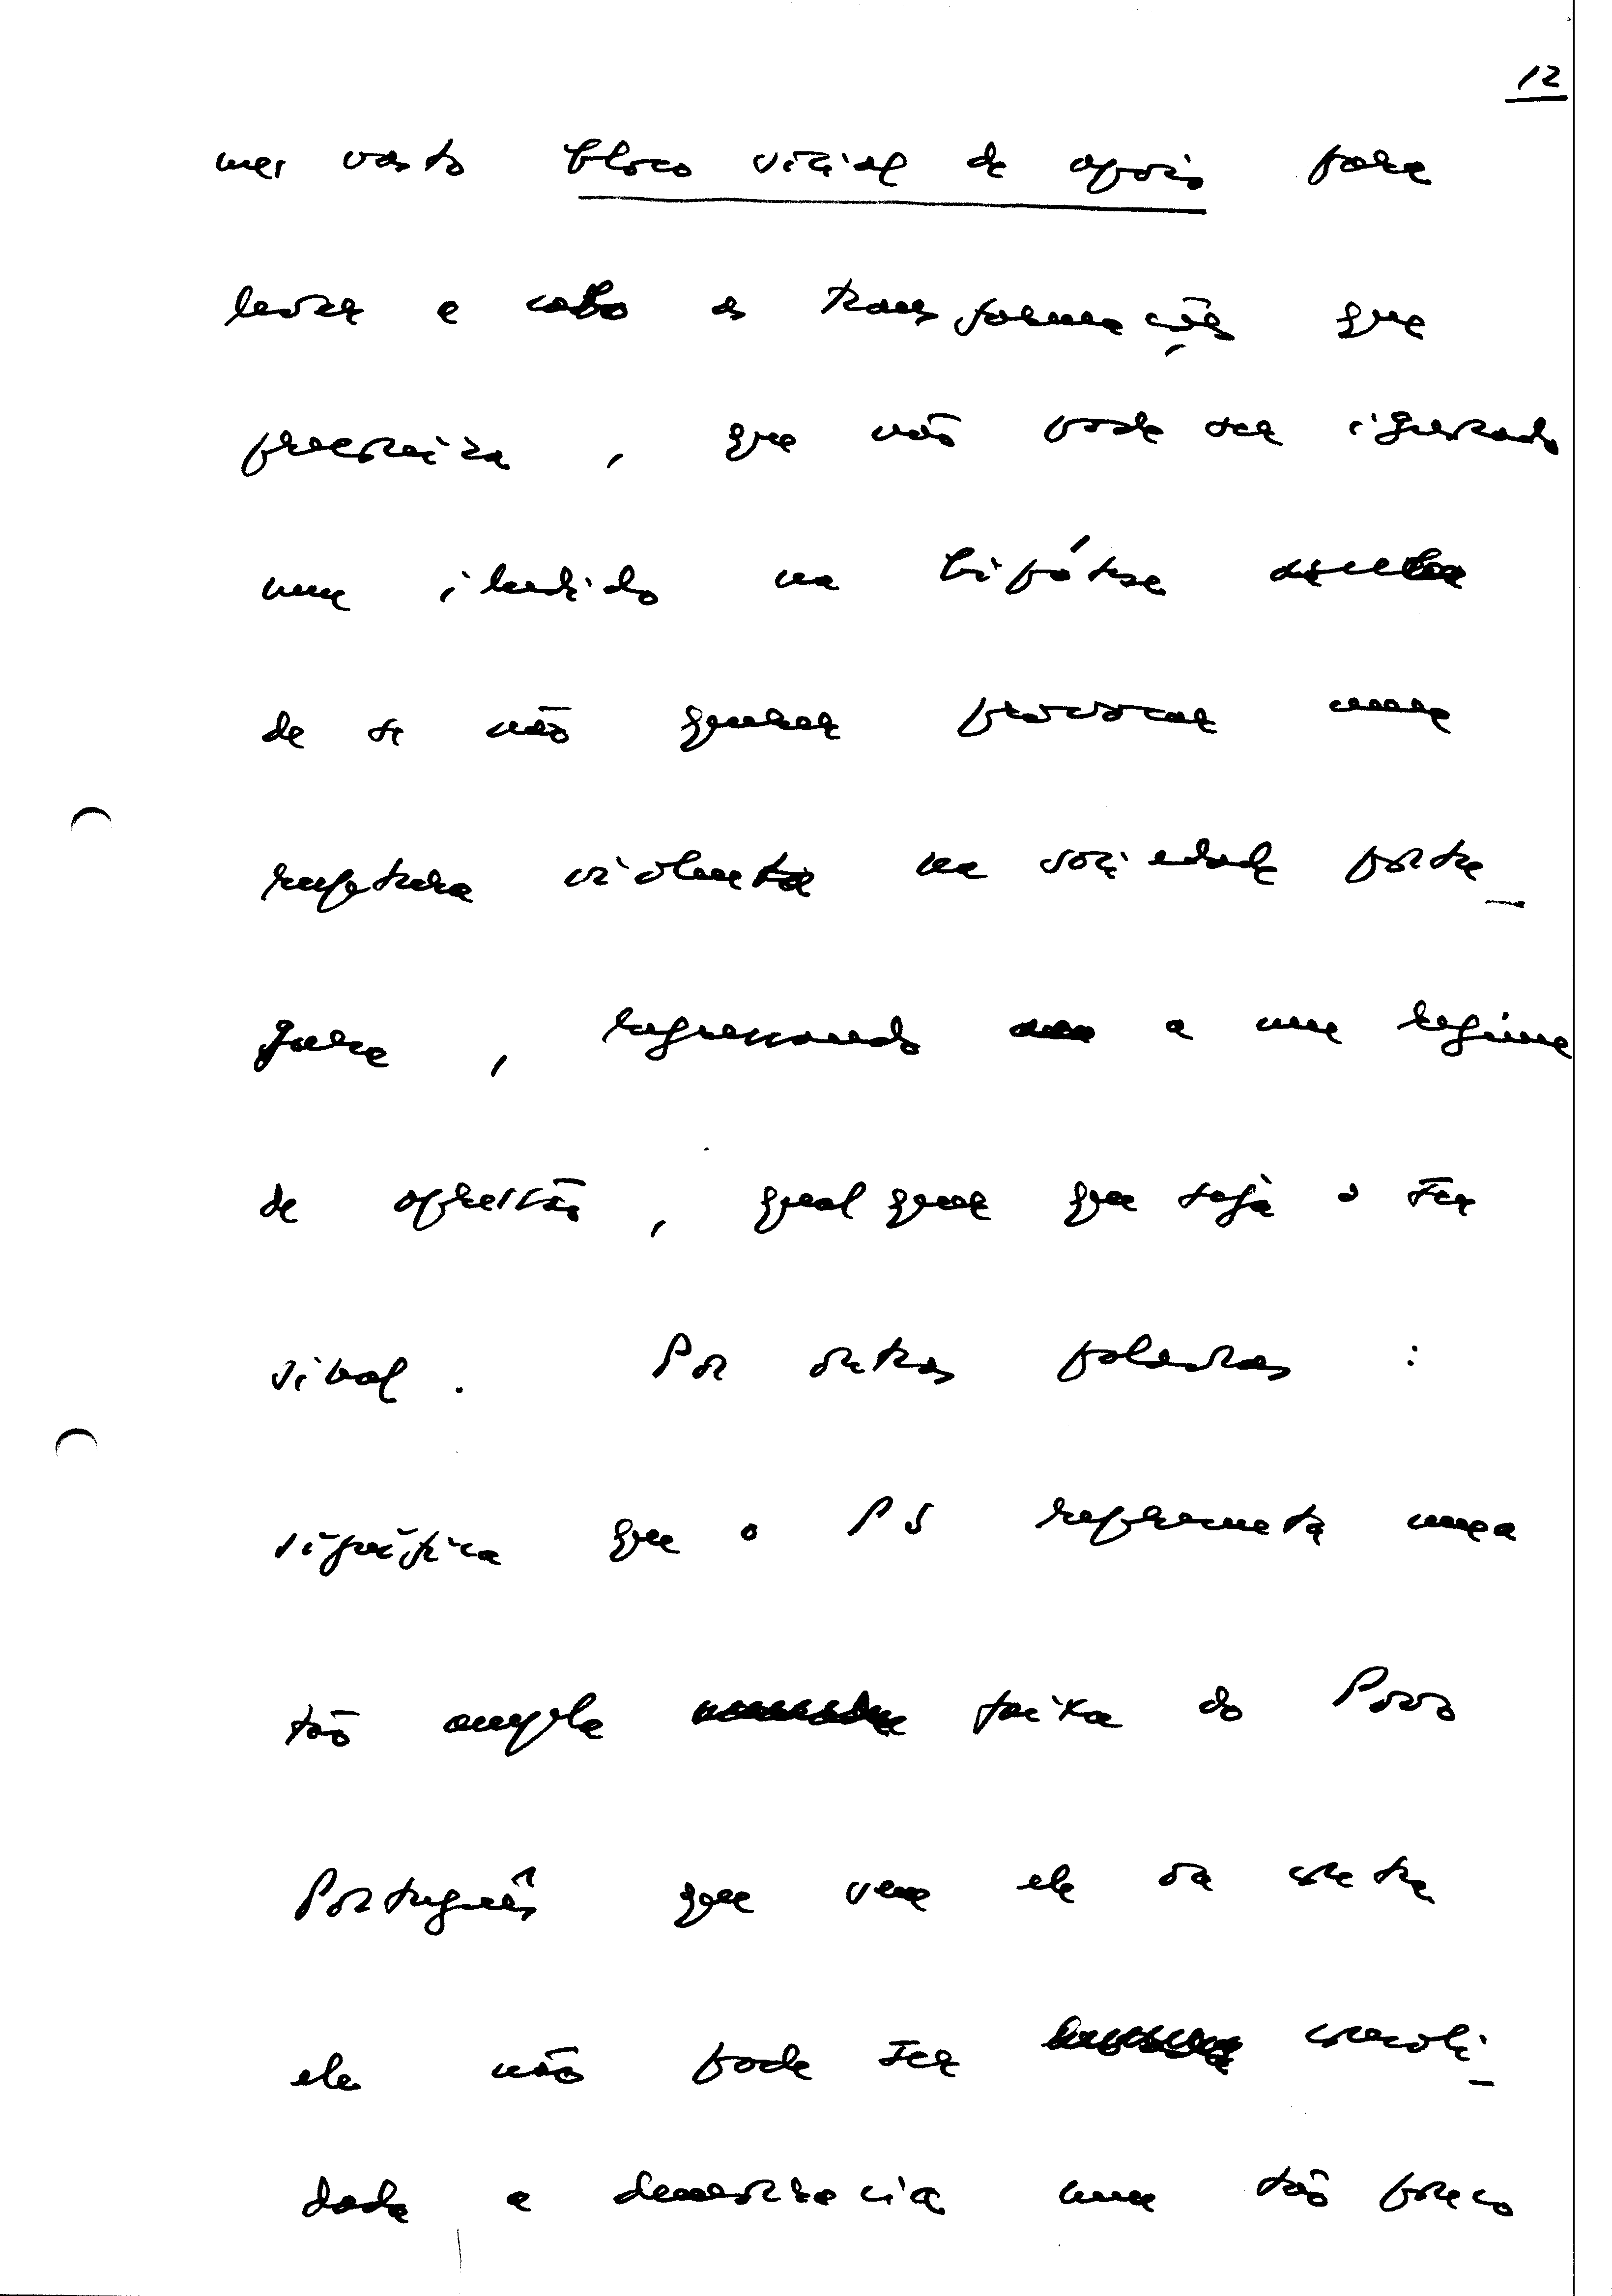 12
um vasto bloco social de apoio para
levar a cabo as transformações que
preconiza, que não pode ser ignorado
nem iludido na hipótese
de se não querer provocar uma
ruptura violenta na sociedade portu-
guesa, regressando a um regime
de opressão, qualquer que seja o seu
sinal. Por outras palavras:
significa que o PS representa uma
tão ampla faixa do Povo
Português que sem ele ou contra
ele não pode ser consoli-
dada a democracia nem tão pouco